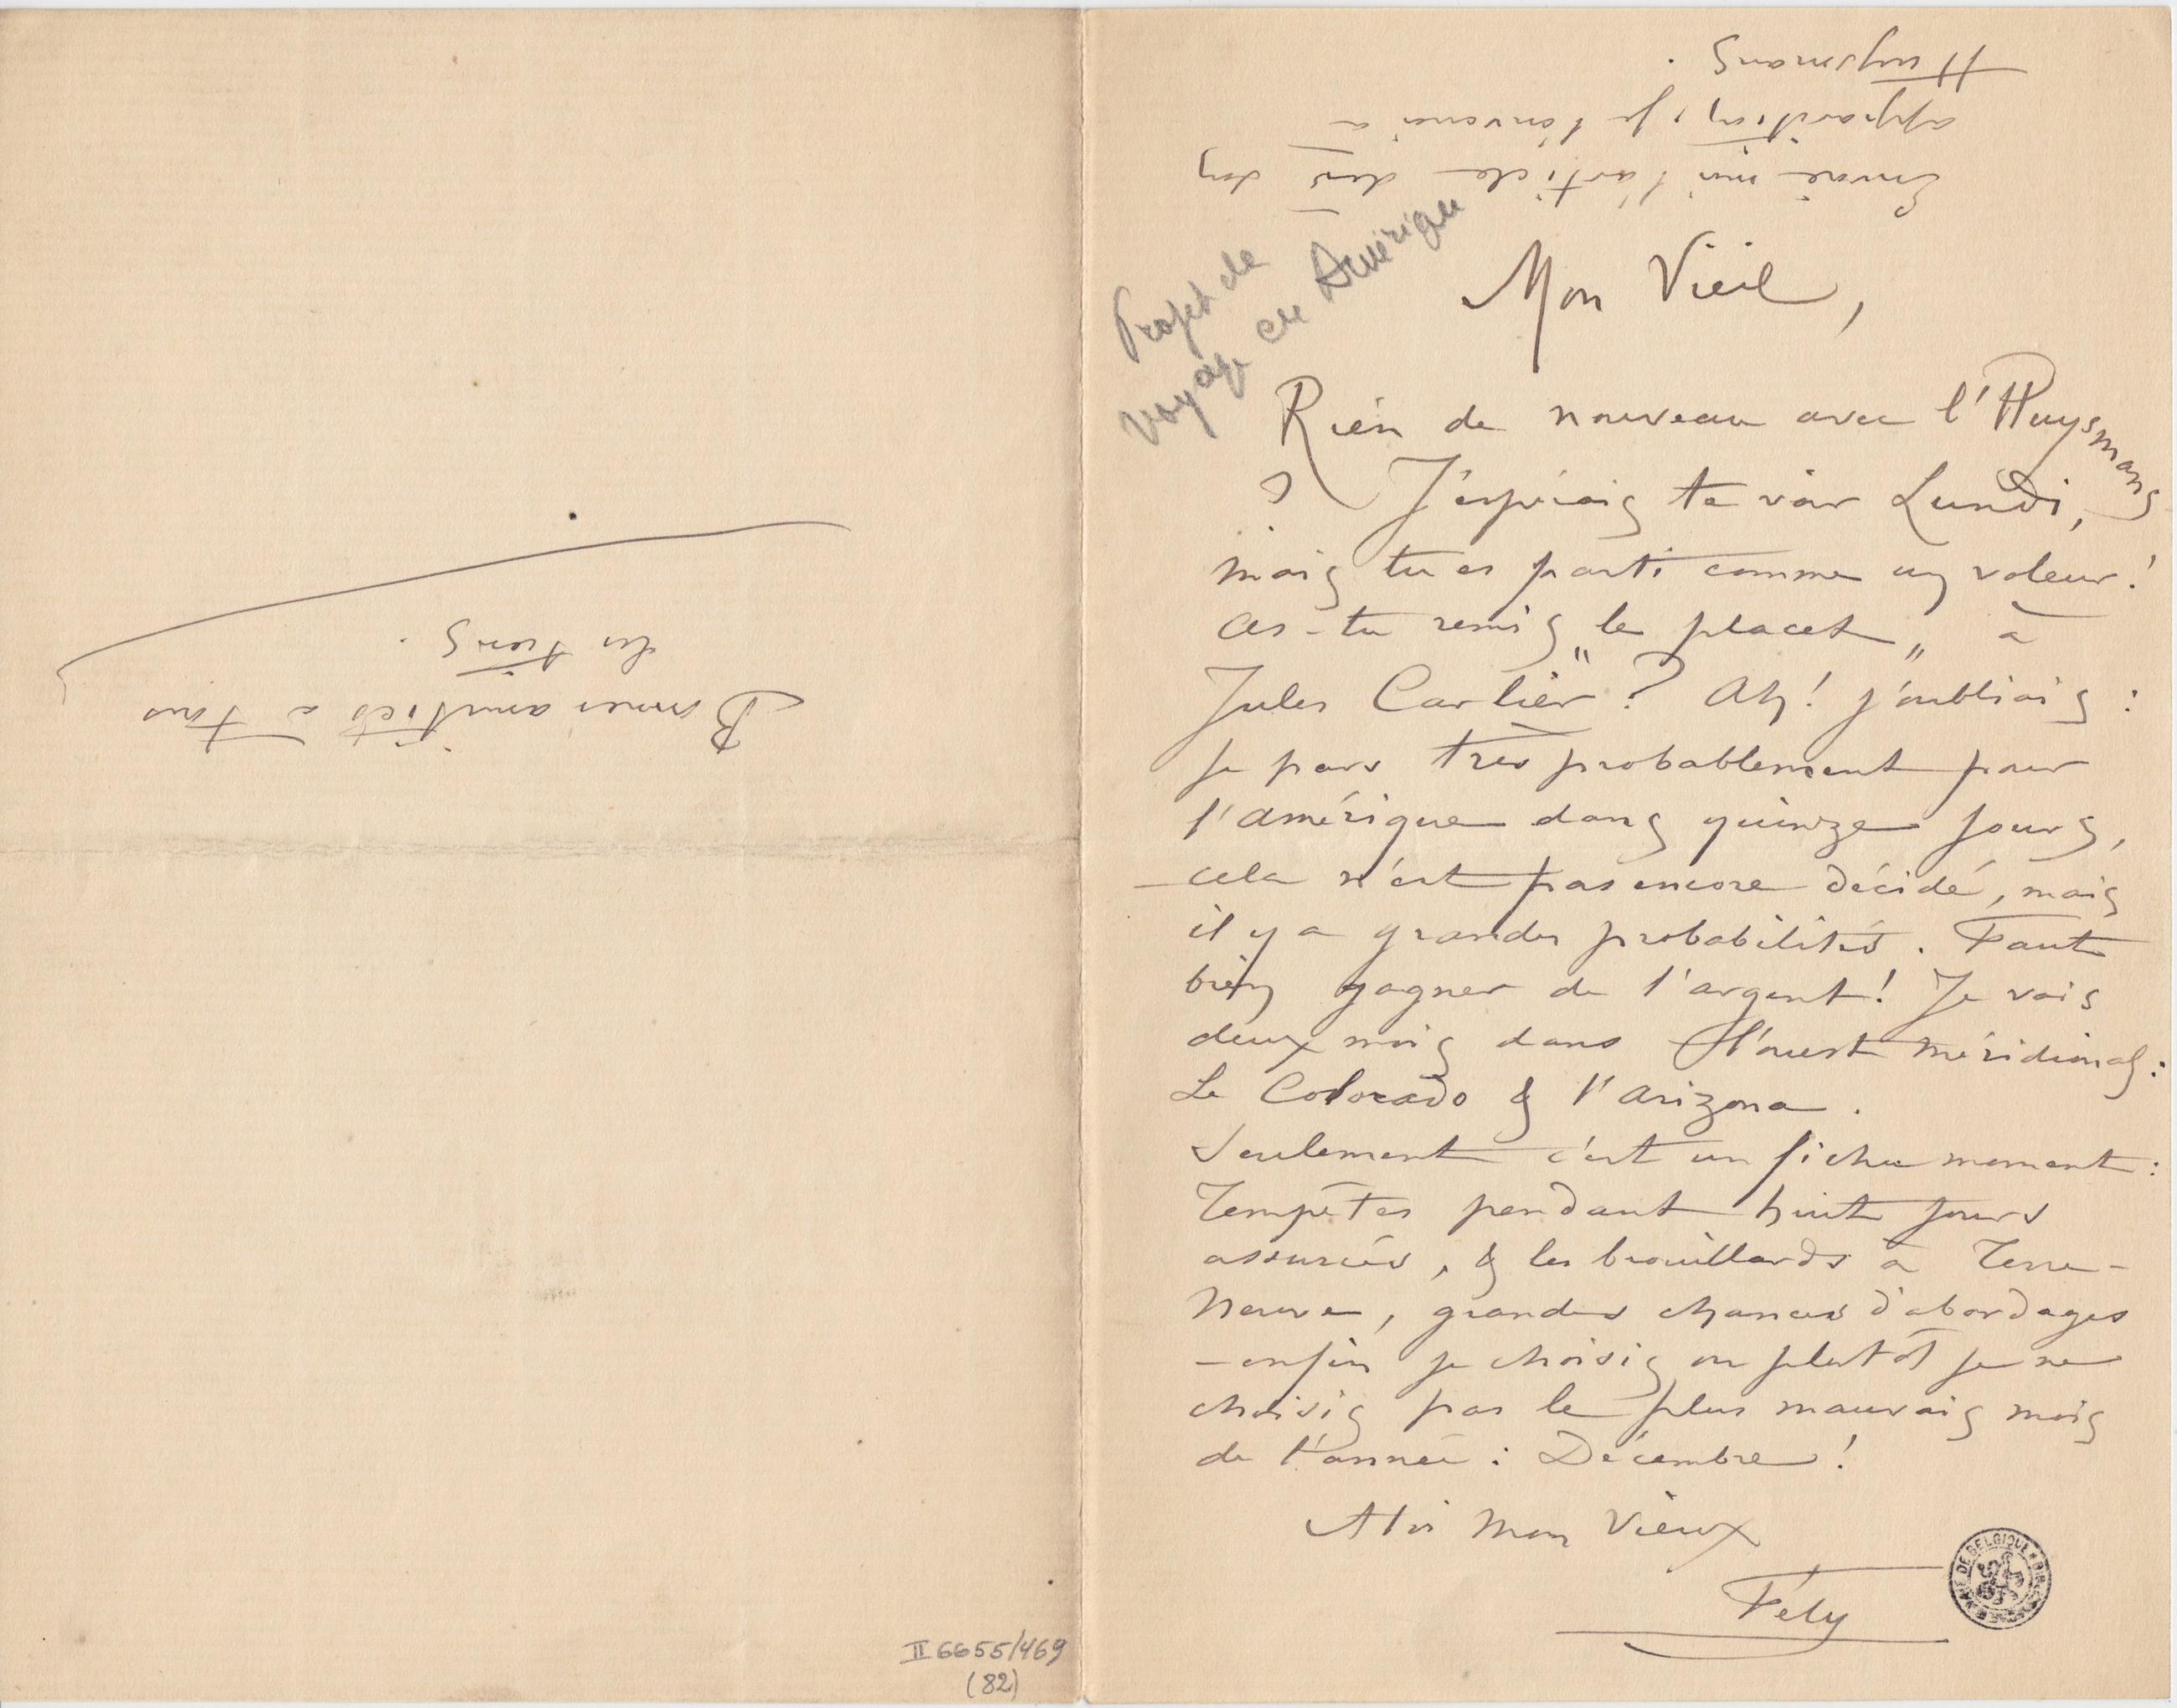 Mon Vieil,
Rien de nouveau avec l'Huysmans
? J'espérais te voir Lundi,
mais tu es parti comme un voleur!
as-tu remis "le placet" à
Jules Carlier? Ah! j'oubliais :
je pars très probablement pour
l'amérique dans quinze jours,
cela n'est pas encore décidé, mais
il y a grandes probabilités. Faut
bien gagner de l'argent! Je vais
deux mois dans l'ouest méridional :
Le Colorado & l'arizona.
Seulement c'est un fichu moment :
Tempêtes pendant huit jours
assurées, & les brouillards à Terre-
Neuve, grandes chances d'abordages
– enfin je choisis ou plutôt je ne
choisis pas le plus mauvais mois
de l'année : Décembre!
A toi mon Vieux
Fély
Envoie moi l'article dès son
apparition, je l'enverrai à
Huysmans.
Bonnes amitiés à tous
les trois.
Projet de
voyage en Amérique
II 6655/469
(82)